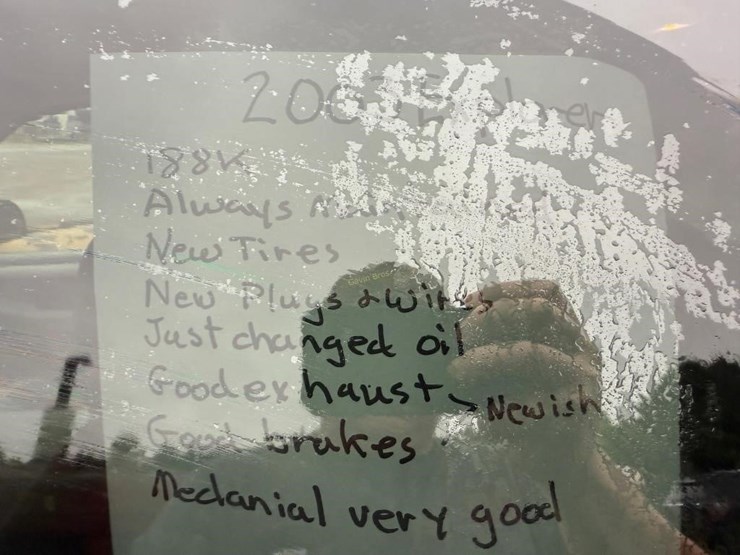 188K
Always
New Tires
New Plugs & wires
Just changed oil
Good exhaust - Newish
Good brakes
Mechanial very good